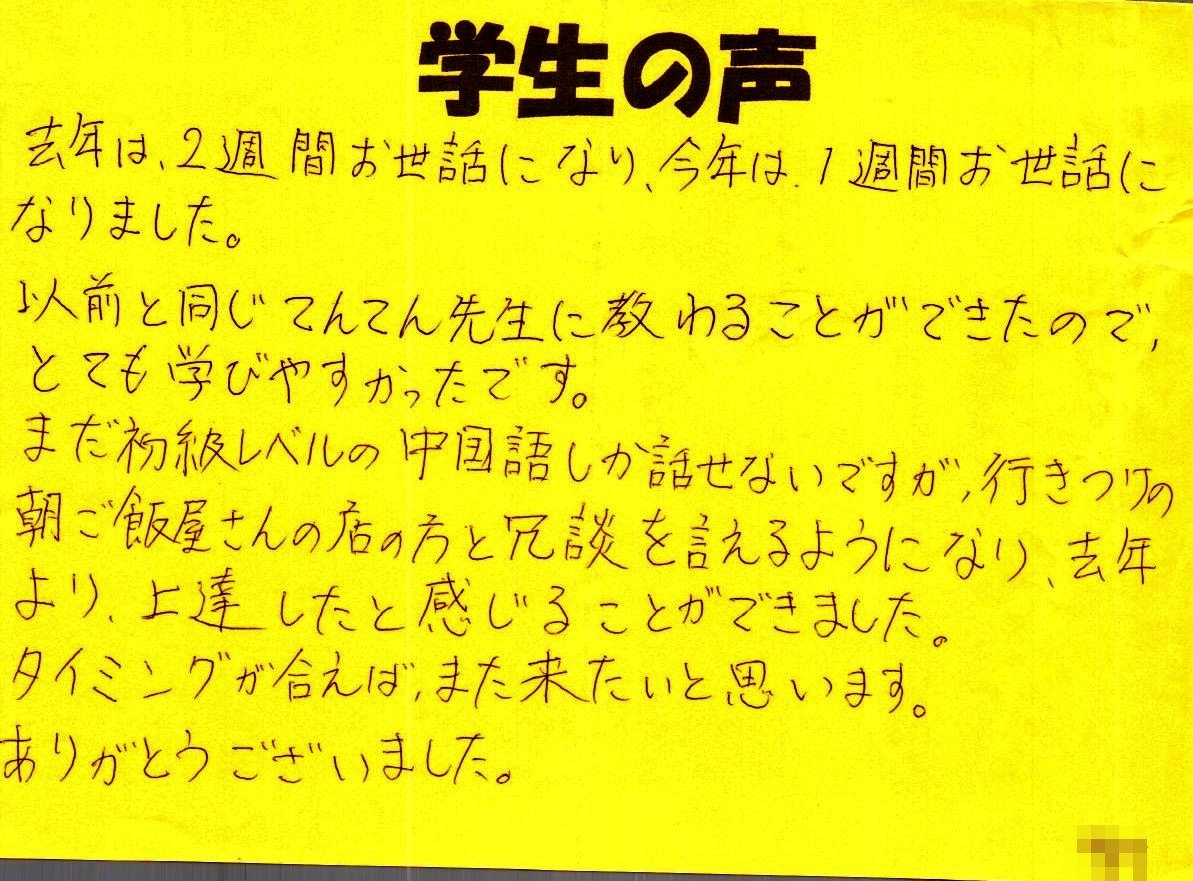 学生の声
去年は、2週間お世話になり、今年は、1週間お世話に
なりました。
以前と同じてんてん先生に教わることができたので、
とても学びやすかったです。
まだ初級レベルの中国語しか話せないですが、行きつけの
朝ご飯屋さんの店の方と冗談を言えるようになり、去年
より、上達したと感じることができました。
タイミングが合えば、また来たいと思います。
ありがとうございました。